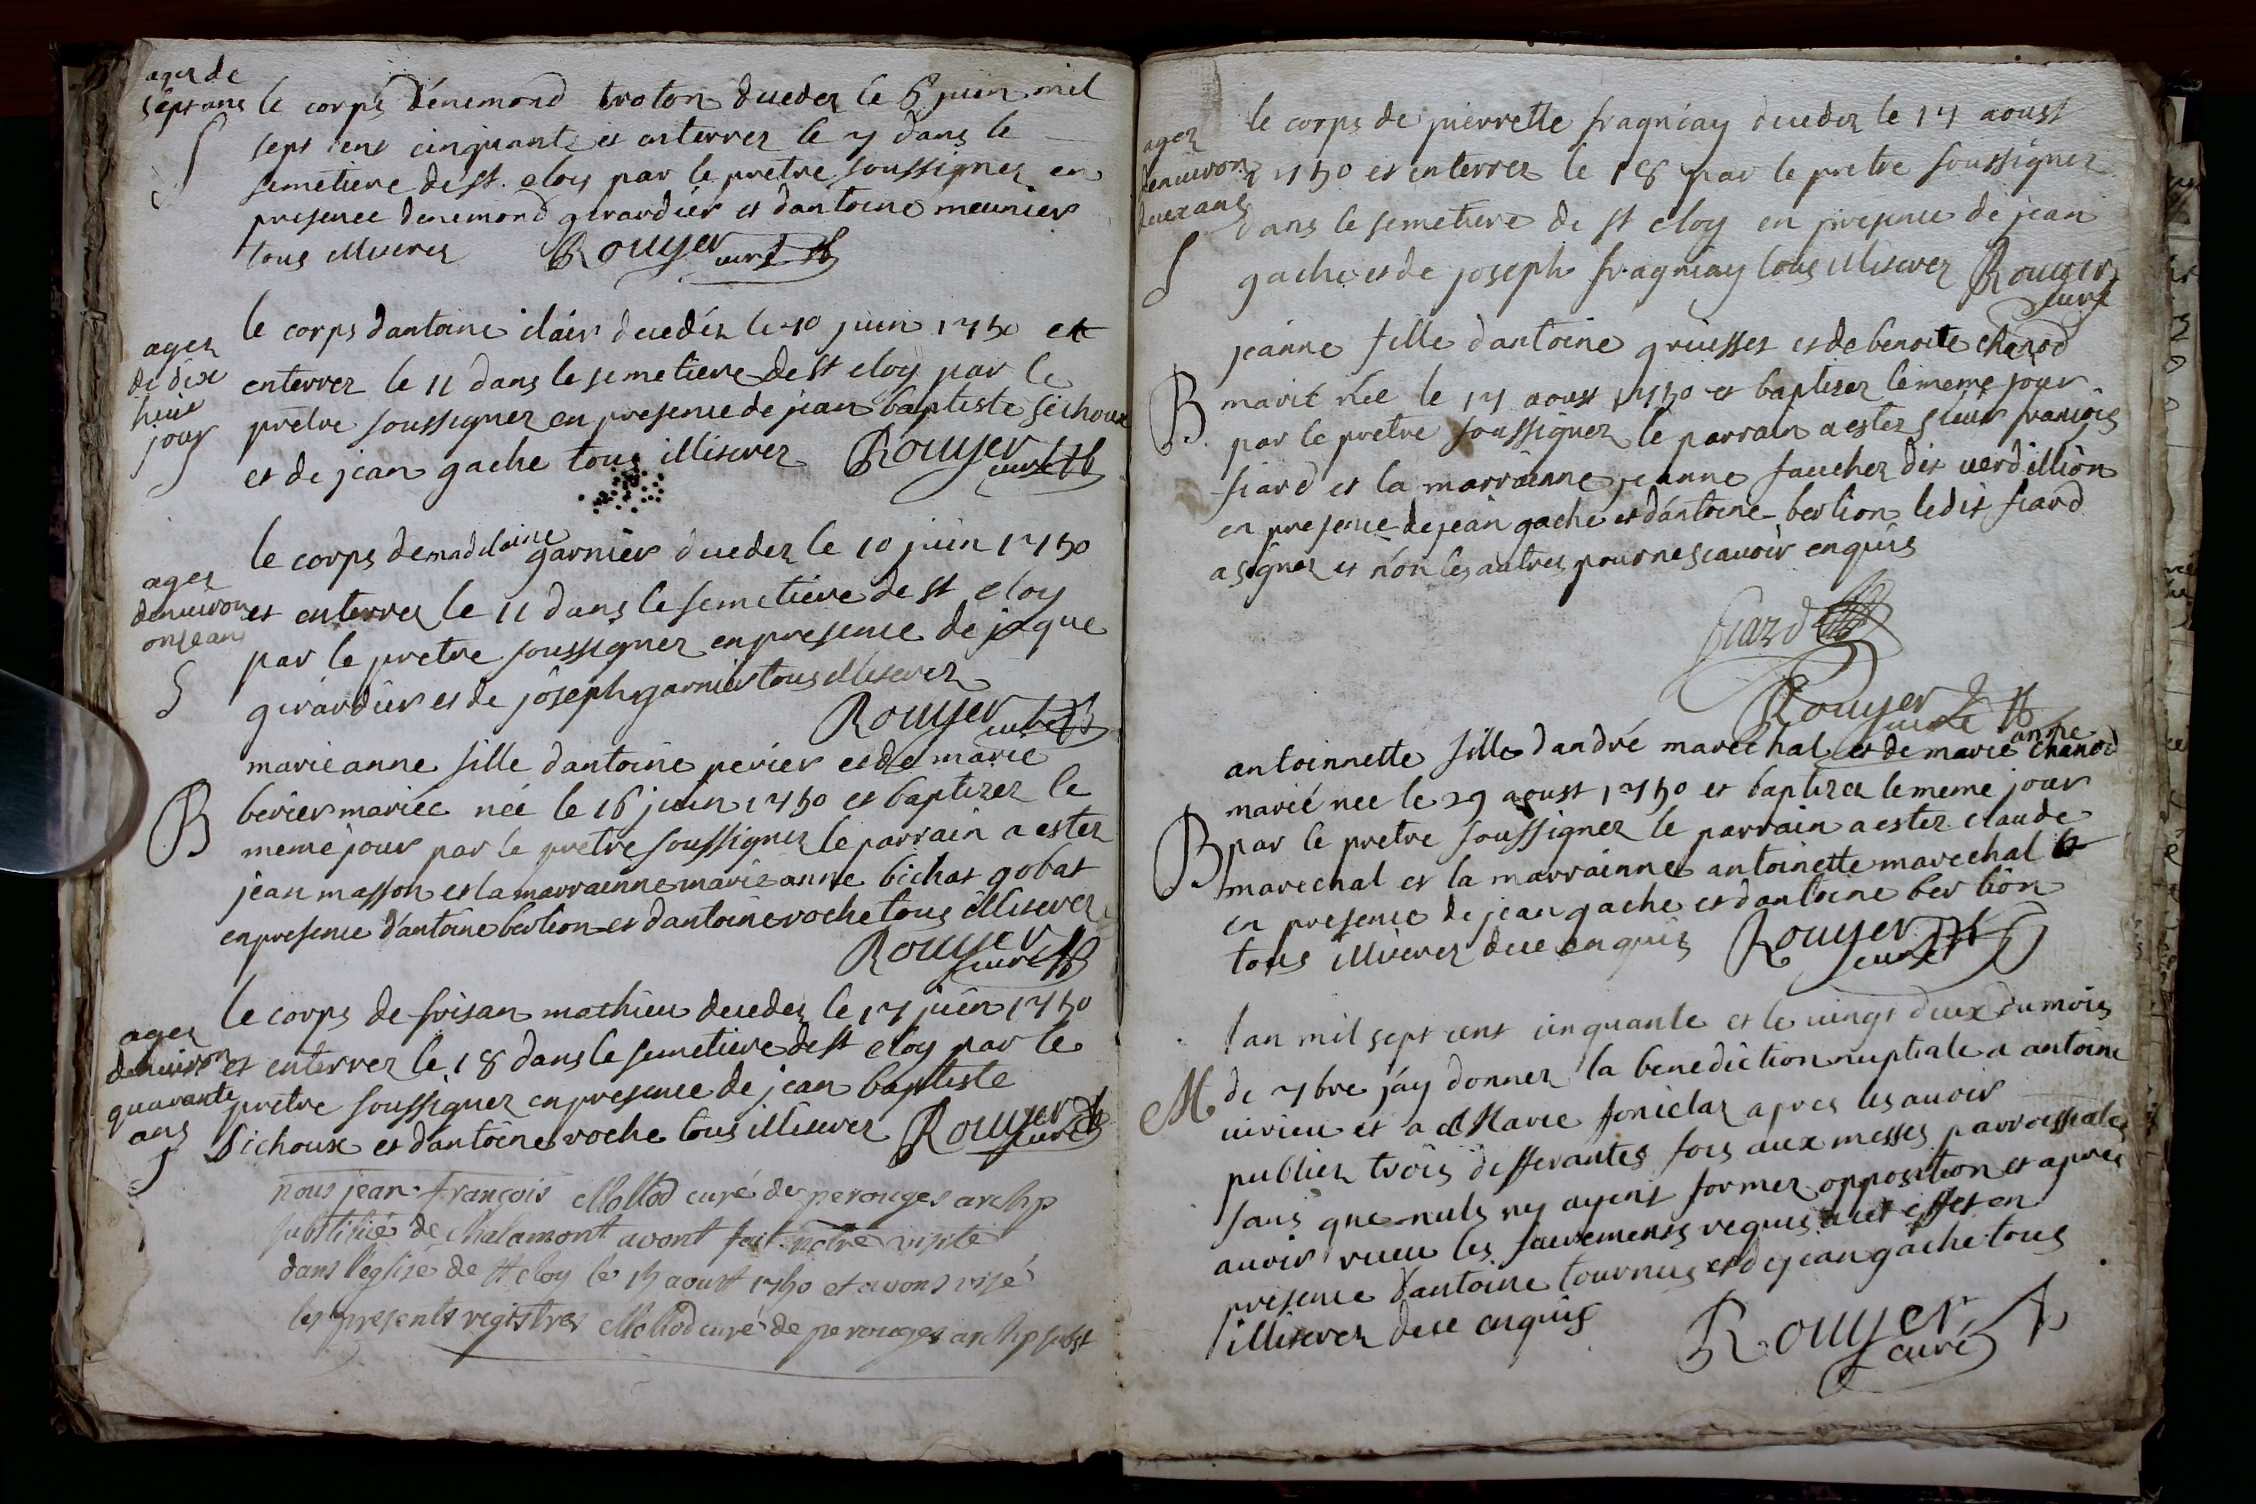 agez de
sept ans
S
le corps d'enemond troton decedez le 6 juin mil
sept cens cinquante et enterrez le 7 dans le
semetiere de st. eloy par le pretre soussignez en
presence denemond girardier et dantoine meunier
tous illiterez Rouyer curé
agez
de dix
heuit
jour
S
le corps dantoine clair decedéz le 10 juin 1750 et
enterrez le 11 dans le semetiere de st eloy par le
pretre soussignez en presence de jean baptiste Sichoux
et de jean gache tous illiterez Rouyer curé
agez
denuiron
onse ans
S
le corps de madelaine garnier decedez le 10 juin 1750
et enterrez le 11 dans le semetiere de st eloy
par le pretre soussignez en presence de jaque
girardier et de joseph garnier tous illiterez
Rouyer curé
B
marie anne fille dantoine perier et de marie
berier mariée née le 16 juin 1750 et baptizez le
meme jour par le pretre soussignez le parrain a estez
jean masson et la marrainne marie anne bichat gobat
en presence d'antoine berlion et dantoine roche tous illiterez
Rouyer curé
agez
denuiron
quarante
ans
S
le corps de frisan mathieu decedez le 17 juin 1750
et enterrez le 18 dans le semetiere de st eloy par le
pretre soussignez en presence de jean baptiste
Sichoux et dantoine roche tous illiterez Rouyer curé
nous jean françois Mollod curé de perouges archp
substitué de Chalamont avont fait notre visite
dans l'eglise de st eloy le 15 aoust 1750 et avons visé
les presents registres Mollod curé de perouges archp subst
agez
denuiron
deux ans
S
le corps de pierrette fragniay decedez le 17 aoust
1750 et enterrez le 18 par le pretre soussignez
dans le semetiere de st eloy en presence de jean
gache et de joseph fragniay tous illiterez Rouyer
curé
B
jeanne fille dantoine griusset et de benoite chanod
marié née le 17 aoust 1750 et baptisez le meme jour
par le pretre soussignez le parrain a estez sieur francois
fiard et la marrainne jeanne faucher dit verdillion
en presence de jean gache et dantoine berlion ledit fiard
a signez et non les autres pour ne scavoir enquis
fiard
Rouyer curé
B
antoinnette fille dandré marechal et de marie anne chanod
marié nee le 29 aoust 1750 et baptizez le meme jour
par le pretre soussignez le parrain a estez claude
marechal et la marrainne antoinette marechal
en presence de jean gache et dantoine berlion
tous illiterez dece enquis Rouyer curé
M
lan mil sept cens cinquante et le vingt deux du mois
de 7bre jay donnez la benediction nuptiale a antoine
uirieu et a Marie foniclaz apres les avoir
publiez trois differantes fois aux messes parroissiales
sans que nuls ny ayent formez opposition et apres
auoir receu les sacrements requis a cet effet en
presence d'antoine tournus et de jean gache tous
illiterez dece enquis Rouyer
curé